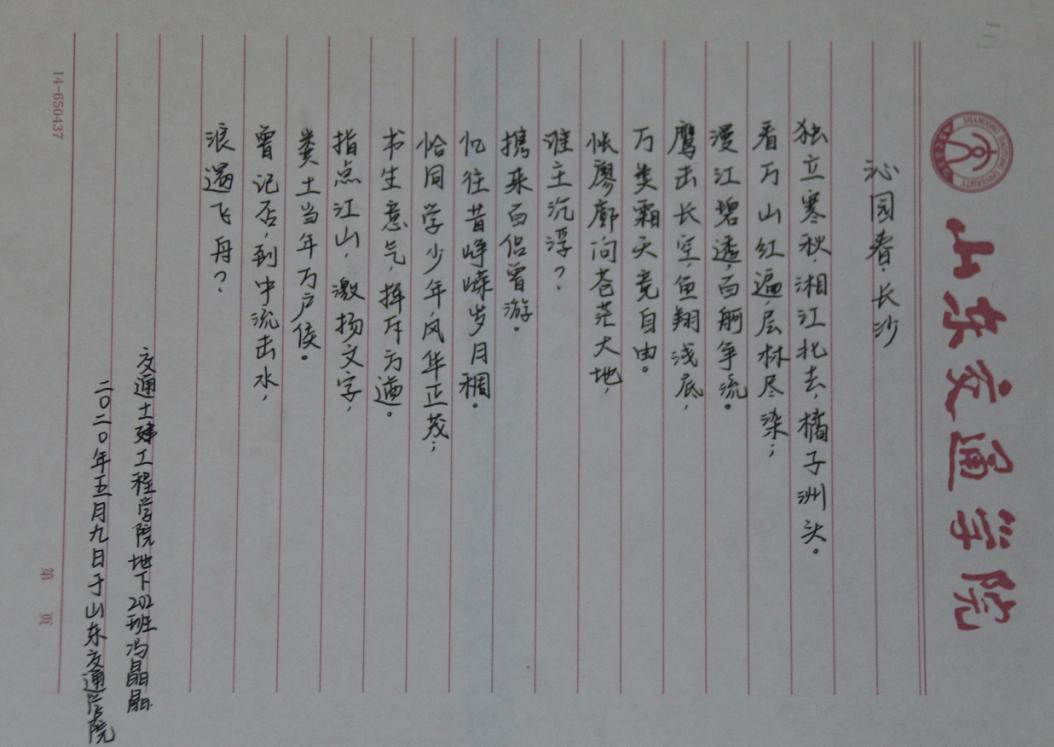 山东交通学院
SHANDONG JIAOTONG UNIVERSITY
三
沁园春·长沙
独立寒秋，湘江北去，橘子洲头。
看万山红遍，层林尽染；
漫江碧透，百舸争流。
鹰击长空，鱼翔浅底，
万类霜天竞自由。
怅廖廓，问苍茫大地，
谁主沉浮？
携来百侣曾游。
忆往昔峥嵘岁月稠。
恰同学少年，风华正茂；
书生意气，挥斥方遒。
指点江山，激扬文字，
粪土当年万户侯。
曾记否，到中流击水，
浪遏飞舟？
交通土建工程学院地下202班冯晶晶
二〇二〇年五月九日于山东交通学院
14-650437
第 页